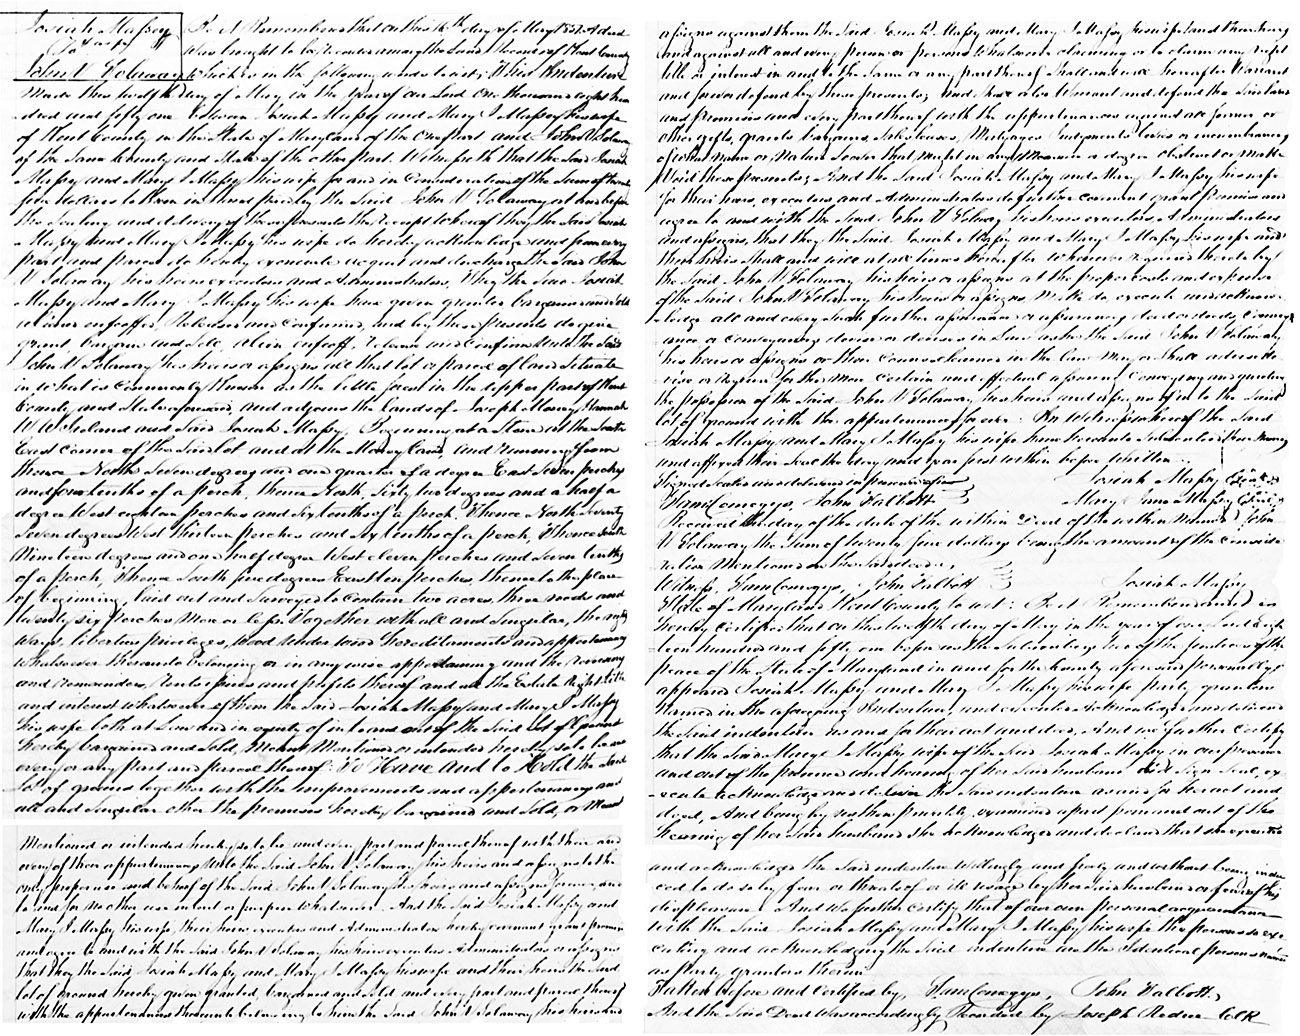 Josiah Massey
To deed
John V Solaway
Be it Remembered that on this 16th day of May 1851 A deed
was brought to be recorded among the Land Records of Kent County
which is in the following words to wit; This Indenture
Made this twelfth day of May in the year of our Lord One thousand eight hun
dred and fifty one between Josiah Massey and Mary J Massey his wife
of Kent County in the State of Maryland of the one part and John V Solaway
of the Same County and State of the other part. Witnesseth that the Said Josiah
Massey and Mary J Massey his wife for and in Consideration of the Sum of twenty
five dollars to them in hand paid by the Said John V Solaway at and before
the Sealing and delivery of these presents the receipt whereof they the Said Josiah
Massey and Mary J Massey his wife do hereby acknowledge and from every
part and parcel do hereby exonerate acquit and discharge the Said John
V Solaway his heirs executors and Administrators, They the Said Josiah
Massey and Mary J Massey his wife have given granted bargained and sold
aliened enfeoffed, Released and Confirmed, and by these presents do give
grant bargain and sell, alien enfeoff, release and confirm unto the Said
John V Solaway his heirs or assigns all that lot or parcel of land Situate
in what is Commonly Known as the little forest in the upper part of Kent
County and State aforesaid, and adjoins the lands of Joseph Money Hannah
W Ireland and Said Josiah Massey. Beginning at a Stone at the South
East corner of the Said lot and at the Money land, and running from
thence North Seven degrees and one quarter of a degree East Seven perches
and four tenths of a perch, thence North, Sixty two degrees and a half a
degree West perches and Six tenths of a perch, Thence North Seventy
Seven degrees West thirteen perches and Six tenths of a perch, Thence South
Nineteen degrees and one half degree West eleven perches and Seven tenths
of a perch, Thence South five degrees East ten perches, thence to the place
of beginning, laid out and Surveyed to Contain two acres, three roods and
twenty six perches More or less Together with all and Singular, the rights
ways, liberties privileges, wood under wood Hereditaments and appurtenances
whatsoever thereunto belonging or in any wise appertaining and the reversion
and remainders, rents issues and profits thereof and all the Estate right title
and interest whatsoever of them the Said Josiah Massey and Mary J Massey
his wife both at Law and in equity of in to and out of the Said lot of ground
hereby bargained and Sold, Meant Mentioned or intended hereby so to be and
every or any part and parcel thereof. To Have and to Hold the Said
lot of ground together with the improvements and appurtenances and
all and Singular other the premises hereby bargained and Sold, or Meant
Mentioned or intended hereby so to be and every part and parcel thereof with their and
every of their appurtenances Unto the Said John V Solaway his heirs and assigns to the
only proper use and behoof of the Said John V Solaway his heirs and assigns forever, and
to and for no other use intent or purpose whatsoever. And the Said Josiah Massey and
Mary J Massey his wife, their heirs, executors and Administrators hereby covenant grant promise
and agree to and with the Said John V Solaway his heirs executors Administrators or assigns
that they the Said Josiah Massey and Mary J Massey his wife and their heirs the Said
lot of ground hereby given granted, bargained and Sold and every part and parcel thereof
with the appurtenances thereunto belonging to him the Said John V Solaway his heirs and
assigns against them the Said Josiah Massey and Mary J Massey his wife and their heirs
and against all and every person or persons Whatsoever claiming or to claim any right
title or interest in and to the Same or any part thereof Shall and will hereafter Warrant
and forever defend by these presents; And Shall also Warrant and defend the Said land
and premises and every part thereof with the appurtenances against all former or
other gifts, grants bargains Sales leases, Mortgages Judgments or incumbrances
of what Name or Nature Soever that might in any Manner or degree obstruct or make
Void these presents; And the Said Josiah Massey and Mary J Massey his wife
for their heirs, executors and Administrators do further covenant grant Promise and
agree to and with the Said John V Solaway his heirs executors Administrators
and assigns, that they the Said Josiah Massey and Mary J Massey his wife and
their heirs Shall and will at all times hereafter whenever required thereto by
the Said John V Solaway his heirs or assigns at the proper costs and expense
of the Said John V Solaway his heirs or assigns Make do execute and acknow
ledge all and every Such further assurance or assurances deed or deeds Convey
ance or Conveyances devise or devises in Law as he the Said John V Solaway
his heirs or assigns or their Counsel learned in the law May or Shall advise de
vise or require for the More Certain and effectual assuring Conveying and quieting
the possession of the Said John V Solaway his heirs and assigns of in to the Said
lot of ground with the appurtenances forever. In Witness whereof the Said
Josiah Massey and Mary J Massey his wife have hereunto Subscribed their Names
and affixed their Seals the day and year first within before written.
Signed Sealed and delivered in presence of us Josiah Massey (Seal)
Saml Comegys, John Talbott Mary Jane Massey (Seal)
Received the day of the date of the within Deed of the within Named John
V Solaway the Sum of twenty five dollars being the amount of the consid
eration Mentioned in the Said deed.
Witness, Saml Comegys, John Talbott Josiah Massey
State of Maryland Kent County to wit: Be it Remembered and is
hereby Certified that on this twelfth day of May in the year of our Lord eigh
teen hundred and fifty one before us the Subscribers two of the Justices of the
peace of the State of Maryland in and for the County aforesaid personally
appeared Josiah Massey and Mary J Massey his wife party grantors
Named in the aforegoing Indenture, and executed Acknowledged and delivered
the Said indenture as and for their act and deed, And we further certify
that the Said Mary J Massey wife of the Said Josiah Massey in our presence
and out of the presence and hearing of her Said husband did Sign Seal, ex
ecute acknowledge and deliver the Said indenture as and for her act and
deed, And being by us then privately, examined apart from and out of the
hearing of her Said husband She acknowledged and declared that She executed
and acknowledged the Said indenture Willingly and freely and without being indu
ced to do so by fear or threats of or ill usage by her Said husband or fear of his
displeasure. And We further certify that of our own personal acquaintance
with the Said Josiah Massey and Mary J Massey his wife the persons so exe
cuting and acknowledging the Said indenture are the identical persons named
as party grantors therein
Taken before and Certified by, Saml Comegys, John Talbott,
And the Said Deed Was accordingly Recorded by Joseph Redue Clk